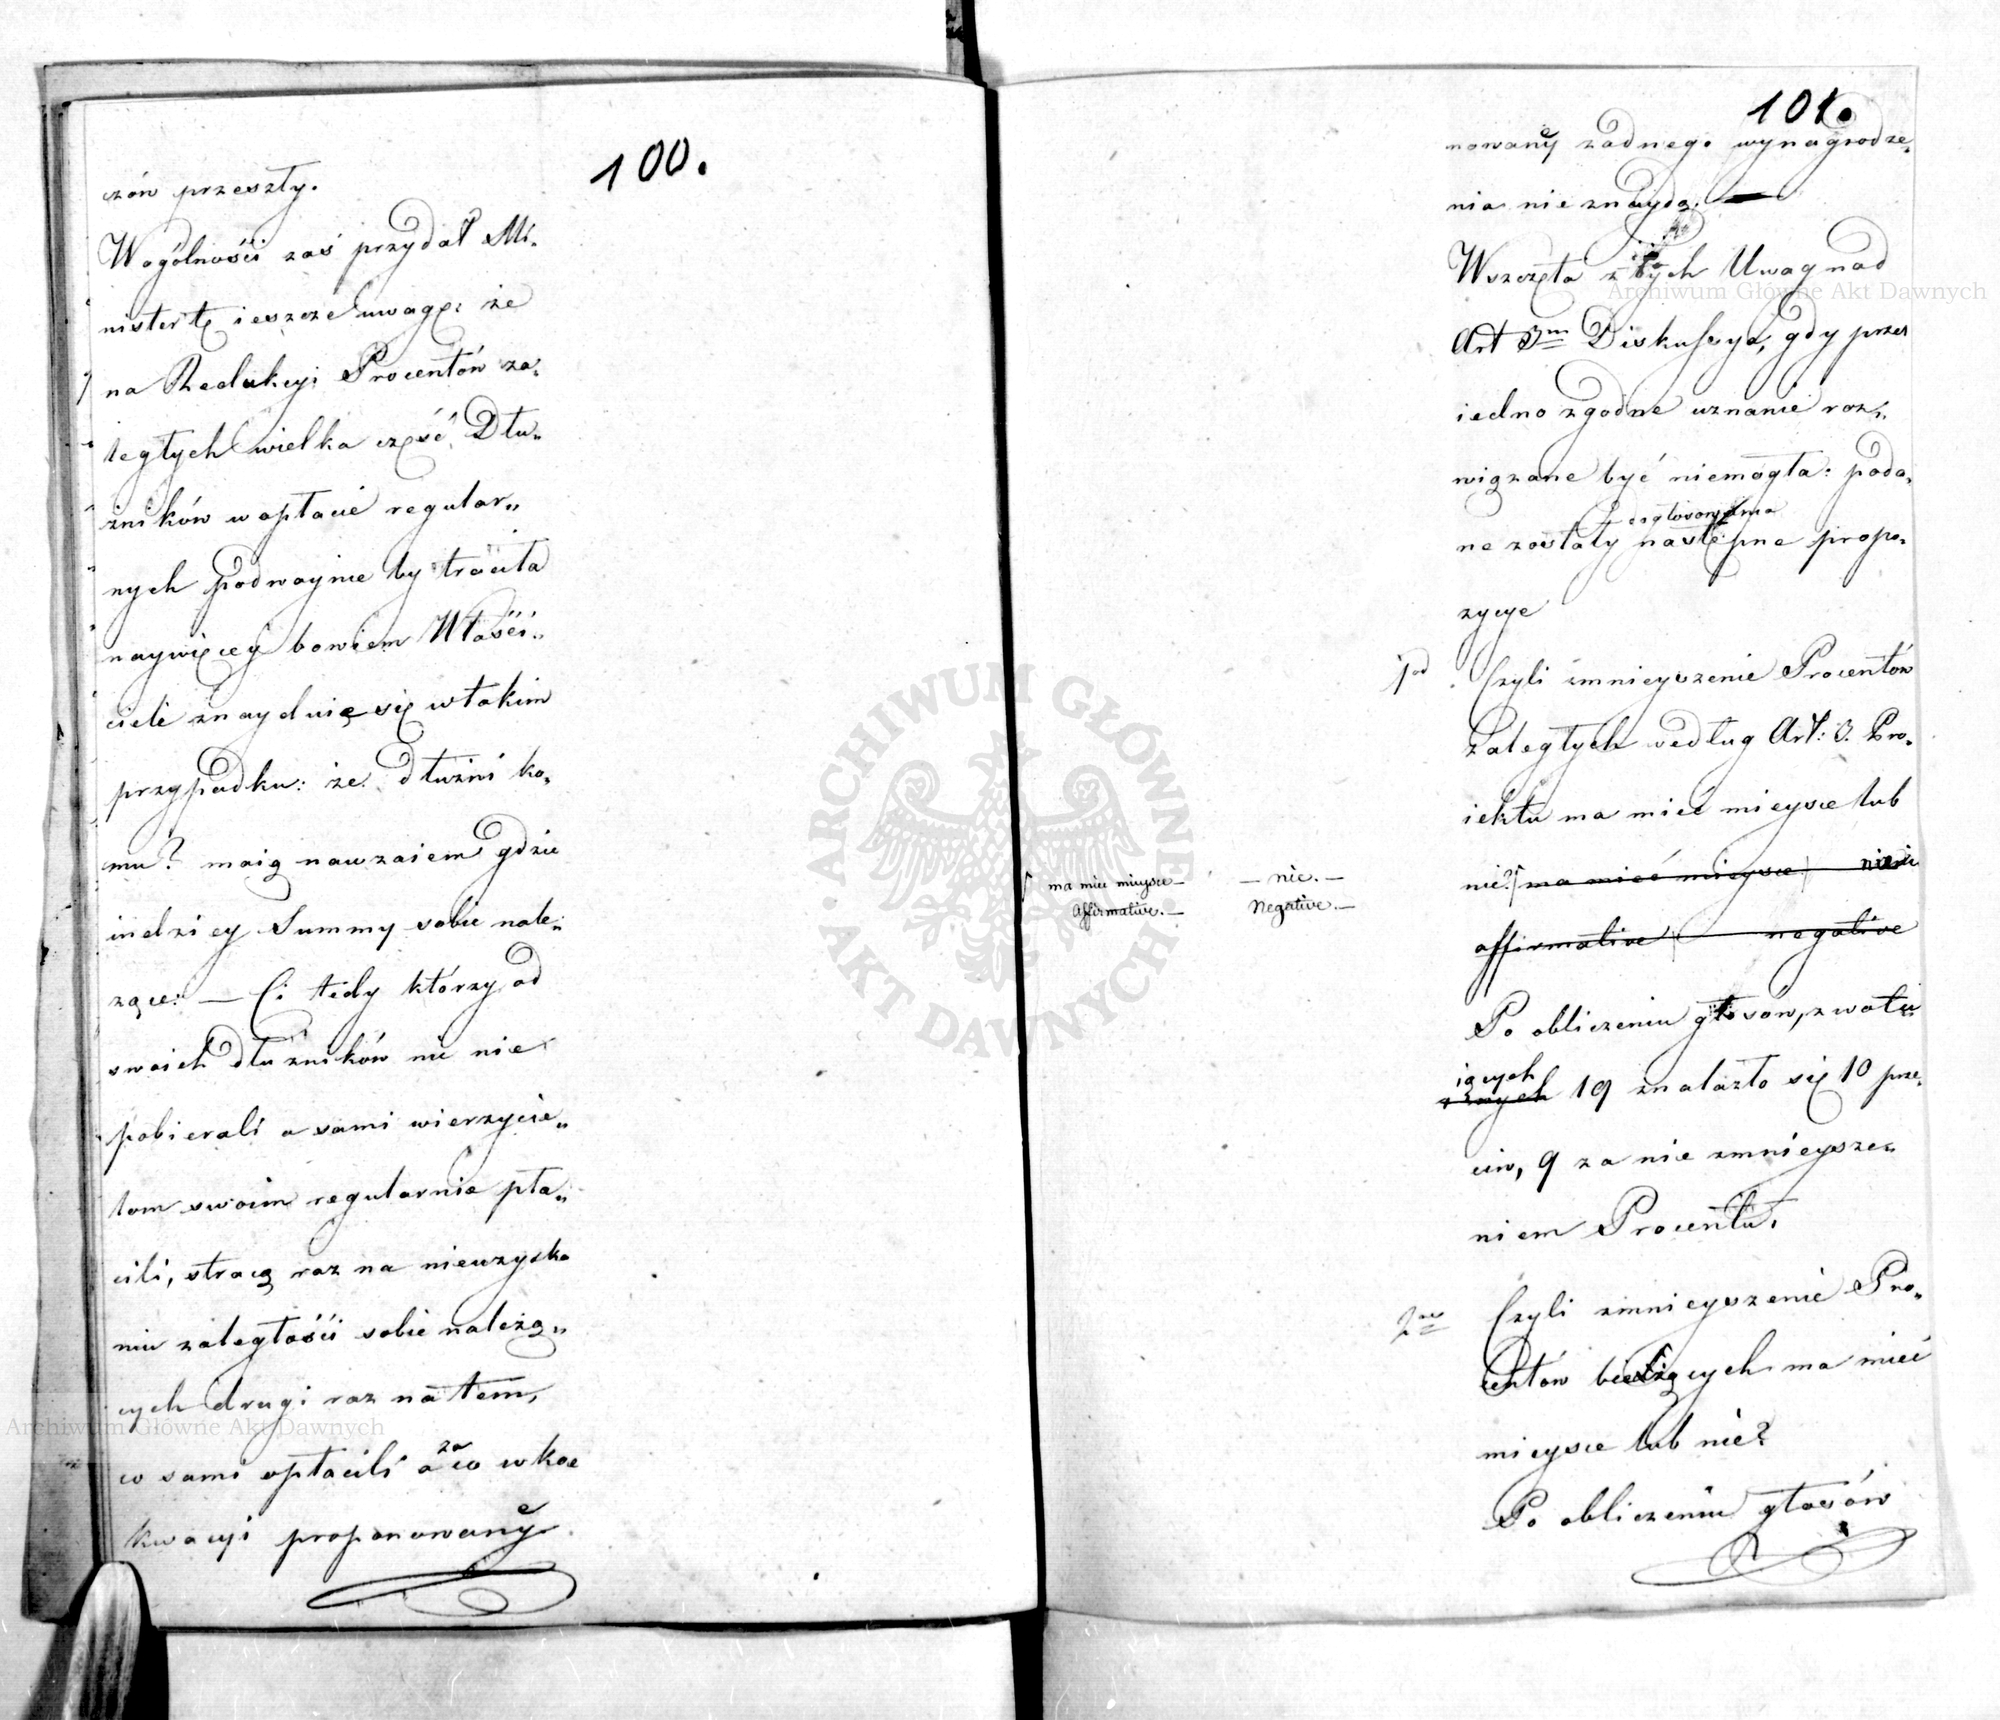 100.
czów przeszły.
W ogólności zaś przydał Mi„
nister tę ieszcze uwagę: że
na Redukcyi Procentów za„
ległych wielka część Dłu„
żników w opłacie regular„
nych podwoynie by traciła
naywięcey bowiem Właści„
cieli znayduię się w takim
przypadku: że dłużni ko„
mu? maią nawzaiem gdzie
indziey Summy sobie nale„
żące: — Ci tedy którzy od
swoich dłużników nic nie
pobierali a sami wierzycie„
lom swoim regularnie pła„
cili, stracą raz na nieuzyska
niu zaległości sobie należą„
cych drugi raz na tem,
co sami opłacili a za co w koe
kwacyi proponowaney
101.
nowaney żadnego wynagrodze„
nia nie znaydą. —
Wszczęta z tych Uwag nad
Art 3m Diskussya, gdy przez
iedno zgodne uznanie roz„
wiązane być niemogła: poda„
do głosowania
ne zostały następne propo„
zycye
1od Czyli zmnieyszenie Procentów
Zaległych według Art: 3. Pro„
iektu ma mieć mieysce lub
nie? ma mieć mieysce nie
affirmative negative
ma mieć mieysce — — nie. —
Affirmative. — Negative. —
Po obliczeniu głosów, z wotu
iących
19 znalazło się 10 prze„
ciw, 9 za nie zmnieysze„
niem Procentu.
2do Czyli zmnieyszenie Pro„
centów bieżących ma mieć
mieysce lub nie?
Po obliczeniu głosów
ARCHIWUM GŁÓWNE AKT DAWNYCH
Archiwum Główne Akt Dawnych
Archiwum Główne Akt Dawnych